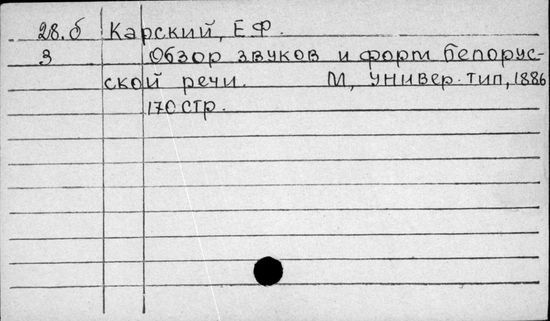 28.б Карский, Е.Ф.
3 Обзор звуков и форм белорус-
ской речи. М, универ. тип, 1886
170 стр.